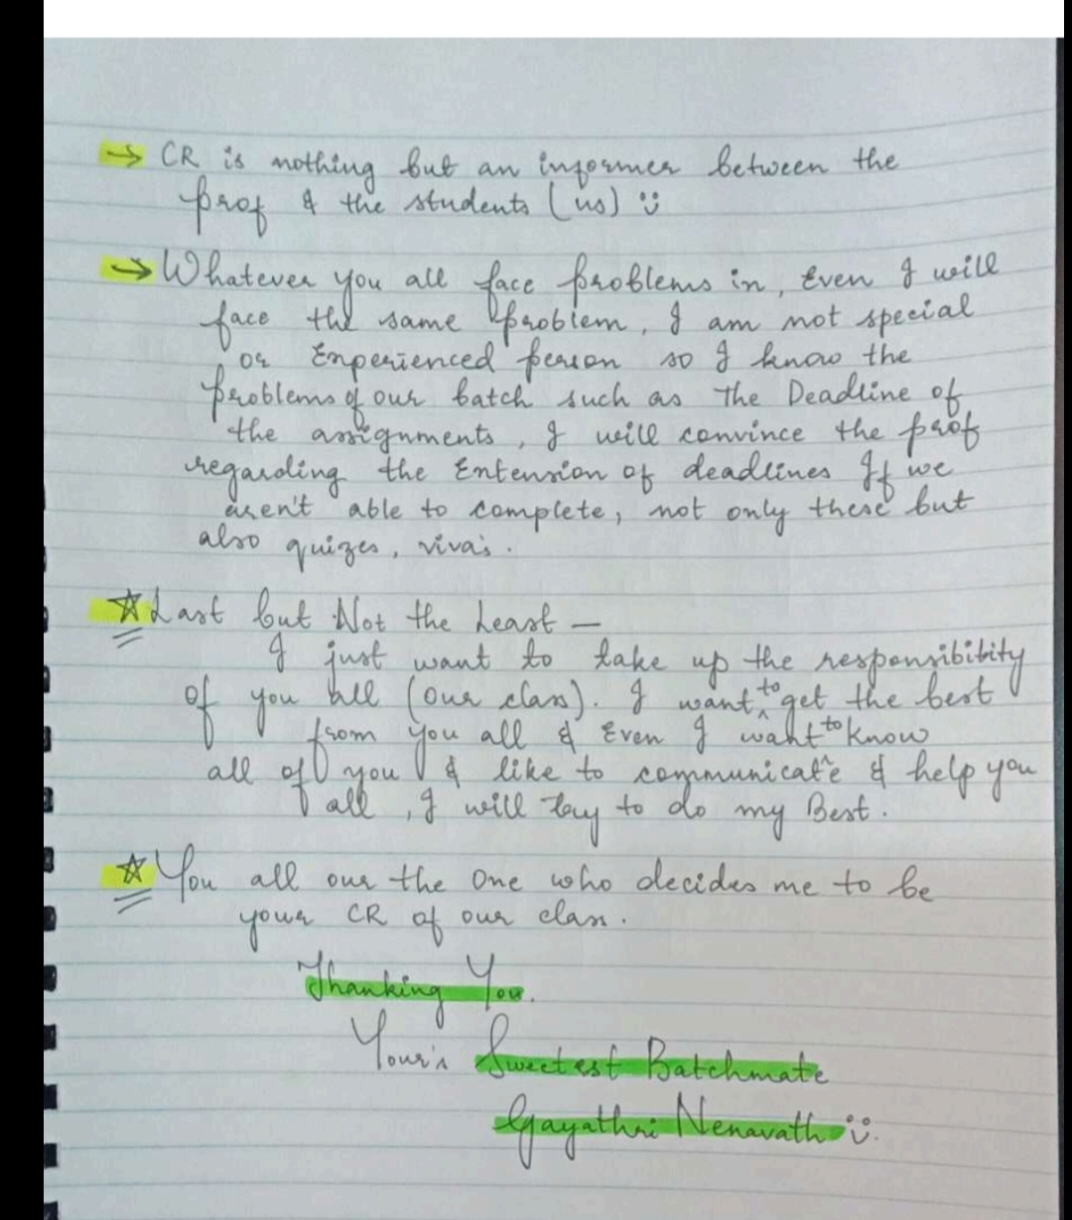 → CR is nothing but an informer between the
prof & the students (us) ☺
→ Whatever you all face problems in, Even I will
face the same problem, I am not special
or Experienced person so I know the
problems of our batch such as The Deadline of
the assignments, I will convince the prof
regarding the Extension of deadlines If we
aren't able to complete, not only these but
also quizes, viva's.
☆ Last but Not the Least —
I just want to take up the responsibility
of you all (our class). I want to get the best
from you all & Even I want to know
all of you & like to communicate & help you
all, I will try to do my Best.
☆ You all our the One who decides me to be
your CR of our class.
Thanking You.
Your's Sweetest Batchmate
Gayathri Nenavath ☺.